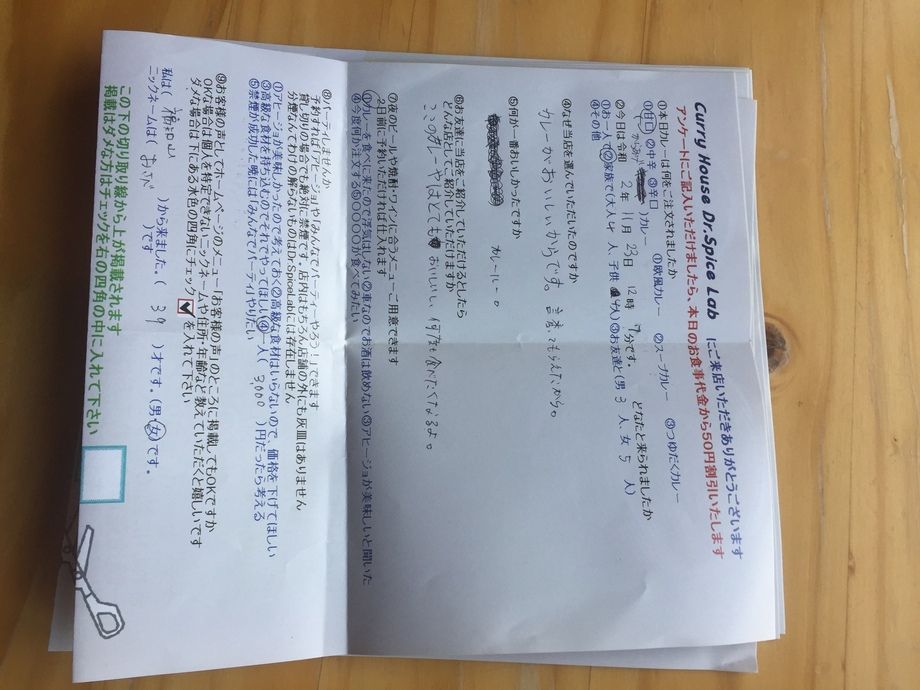 Curry House Dr.Spice Lab にご来店いただきありがとうございます
アンケートにご記入いただけましたら、本日のお食事代金から50円割引いたします
①本日カレーは何をご注文されましたか
①欧風カレー ②スープカレー ③つゆだくカレー
①甘口 ②中辛 ③辛口
)カレー
②今日は令和 2年 11月 23日 12時 分です。 どなたと来られましたか
①お一人で ②家族で(大人4人、子供4人) ③お友達と(男3人、女5人)
④その他
④なぜ当店を選んでいただいたのですか
カレーがおいしいからです。
⑤何が一番おいしかったですか
カレー。
⑥お友達に当店をご紹介していただけるとしたら
どんな店としてご紹介していただけますか
ここのカレーやはとてもおいしいし、何度も食べたくなるよ。
⑦夜のビールや焼酎・ワインに合うメニューご用意できます
2日前に予約いただければ仕入れます
①カレーを食べに来たので浮気はしない ②車なのでお酒は飲めない ③アヒージョが美味しいと聞いた
④今度何か注文する ⑤○○○○が食べてみたい
⑧パーティしませんか
予約すれば「アヒージョ」や「みんなでパーティーやろう!」できます
貸し切りの場合でも絶対に禁煙です。店内はもちろん店舗の外にも灰皿はありません
分煙なんてわけの解らないものはDrSpiceLabには存在しません
①アヒージョが美味しかったので考えておく ②高級な食材はいらないので、価格を下げてほしい
③高級な食材を持ち込むのでそれでやってほしい ④一人で( 3,000 )円だったら考える
⑤禁煙が成功した暁には「みんなでパーティやりたい
⑨お客様の声としてホームページのメニュー「お客様の声」のところに掲載してもOKですか
OKな場合は個人を特定できないニックネームや住所・年齢など教えていただくと嬉しいです
ダメな場合は下にある水色の四角にチェック☑を入れて下さい
私は( 福知山 )から来ました。( 39 )才です。(男・女)です。
ニックネームは( おさが )です
この下の切り取り線から上が掲載されます
掲載はダメな方はチェックを右の四角の中に入れて下さい